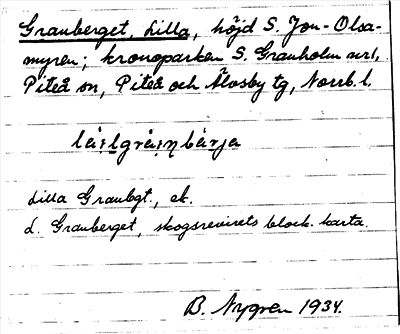 Granberget, Lilla, höjd S. Jon-Olsa-
myren; kronoparken S. Granholm nr 1,
Piteå sn, Piteå och Älvsby tg, Norrb. l.
Lilla Granbgt., ek.
L. Granberget, skogsrevirets block. karta.
B. Nygren 1934.